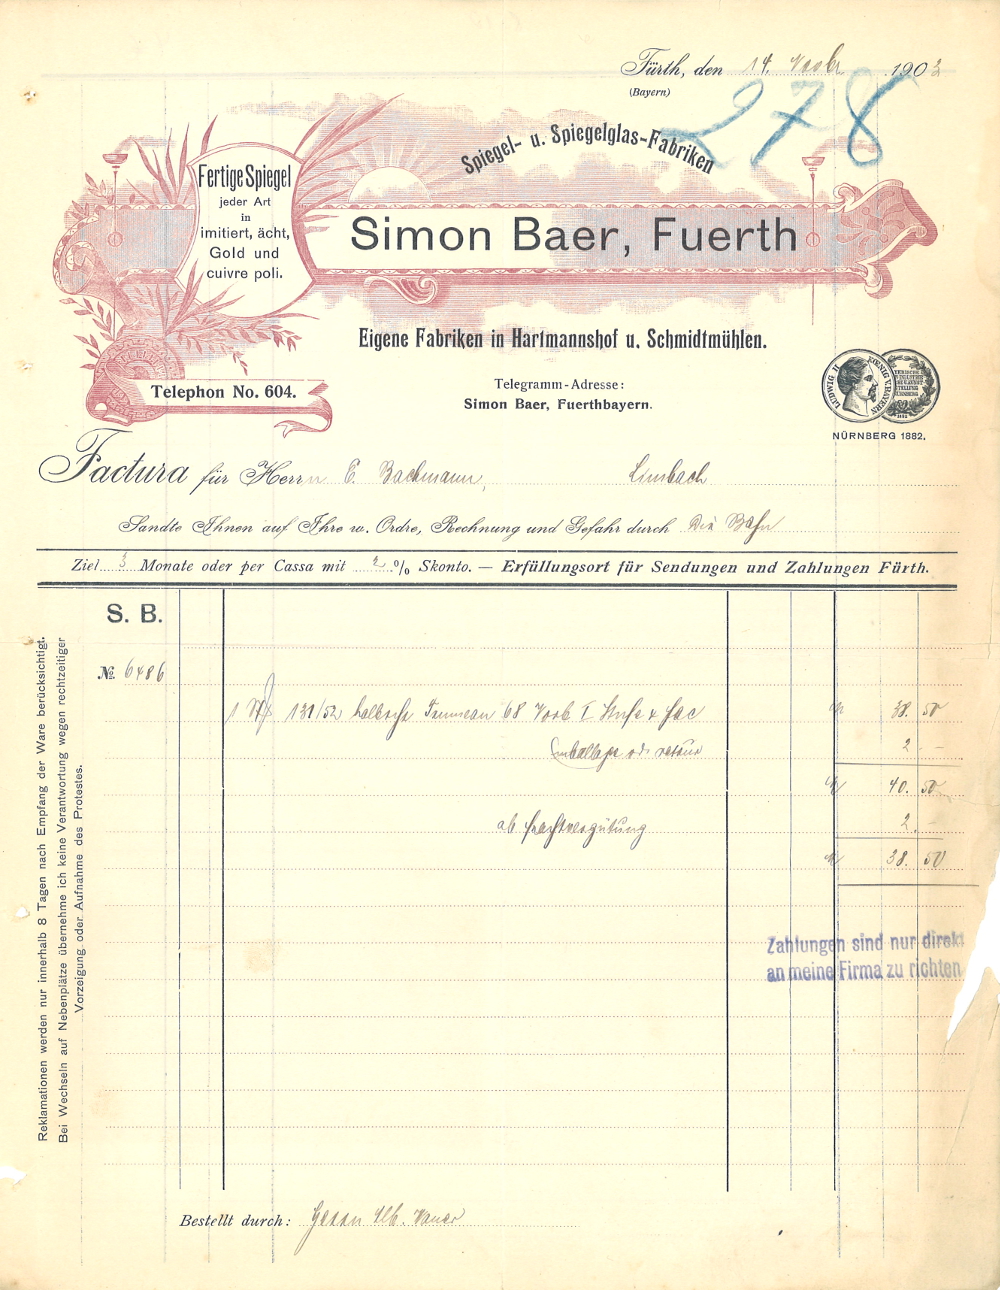 Fürth, den 14. Novbr 1903
(Bayern)
278
Spiegel- u. Spiegelglas-Fabriken
Simon Baer, Fuerth
Fertige Spiegel
jeder Art
in
imitiert, ächt,
Gold und
cuivre poli.
Eigene Fabriken in Hartmannshof u. Schmidtmühlen.
Telephon No. 604.
Telegramm-Adresse:
Simon Baer, Fuerthbayern.
LUDWIG II KOENIG V. BAYERN
NÜRNBERG 1882.
Factura für Herrn C. Bachmann, Limbach
Sandte Ihnen auf Ihre w. Ordre, Rechnung und Gefahr durch Die Bahn
Ziel 3 Monate oder per Cassa mit 2 % Skonto. — Erfüllungsort für Sendungen und Zahlungen Fürth.
S. B.
№ 6486
1 131/52 68 I 38. 50
Emballage retour 2. -
40. 50
ab Frachtvergütung 2. -
38. 50
Zahlungen sind nur direkt
an meine Firma zu richten
Reklamationen werden nur innerhalb 8 Tagen nach Empfang der Ware berücksichtigt.
Bei Wechseln auf Nebenplätze übernehme ich keine Verantwortung wegen rechtzeitiger
Vorzeigung oder Aufnahme des Protestes.
Bestellt durch: Herrn